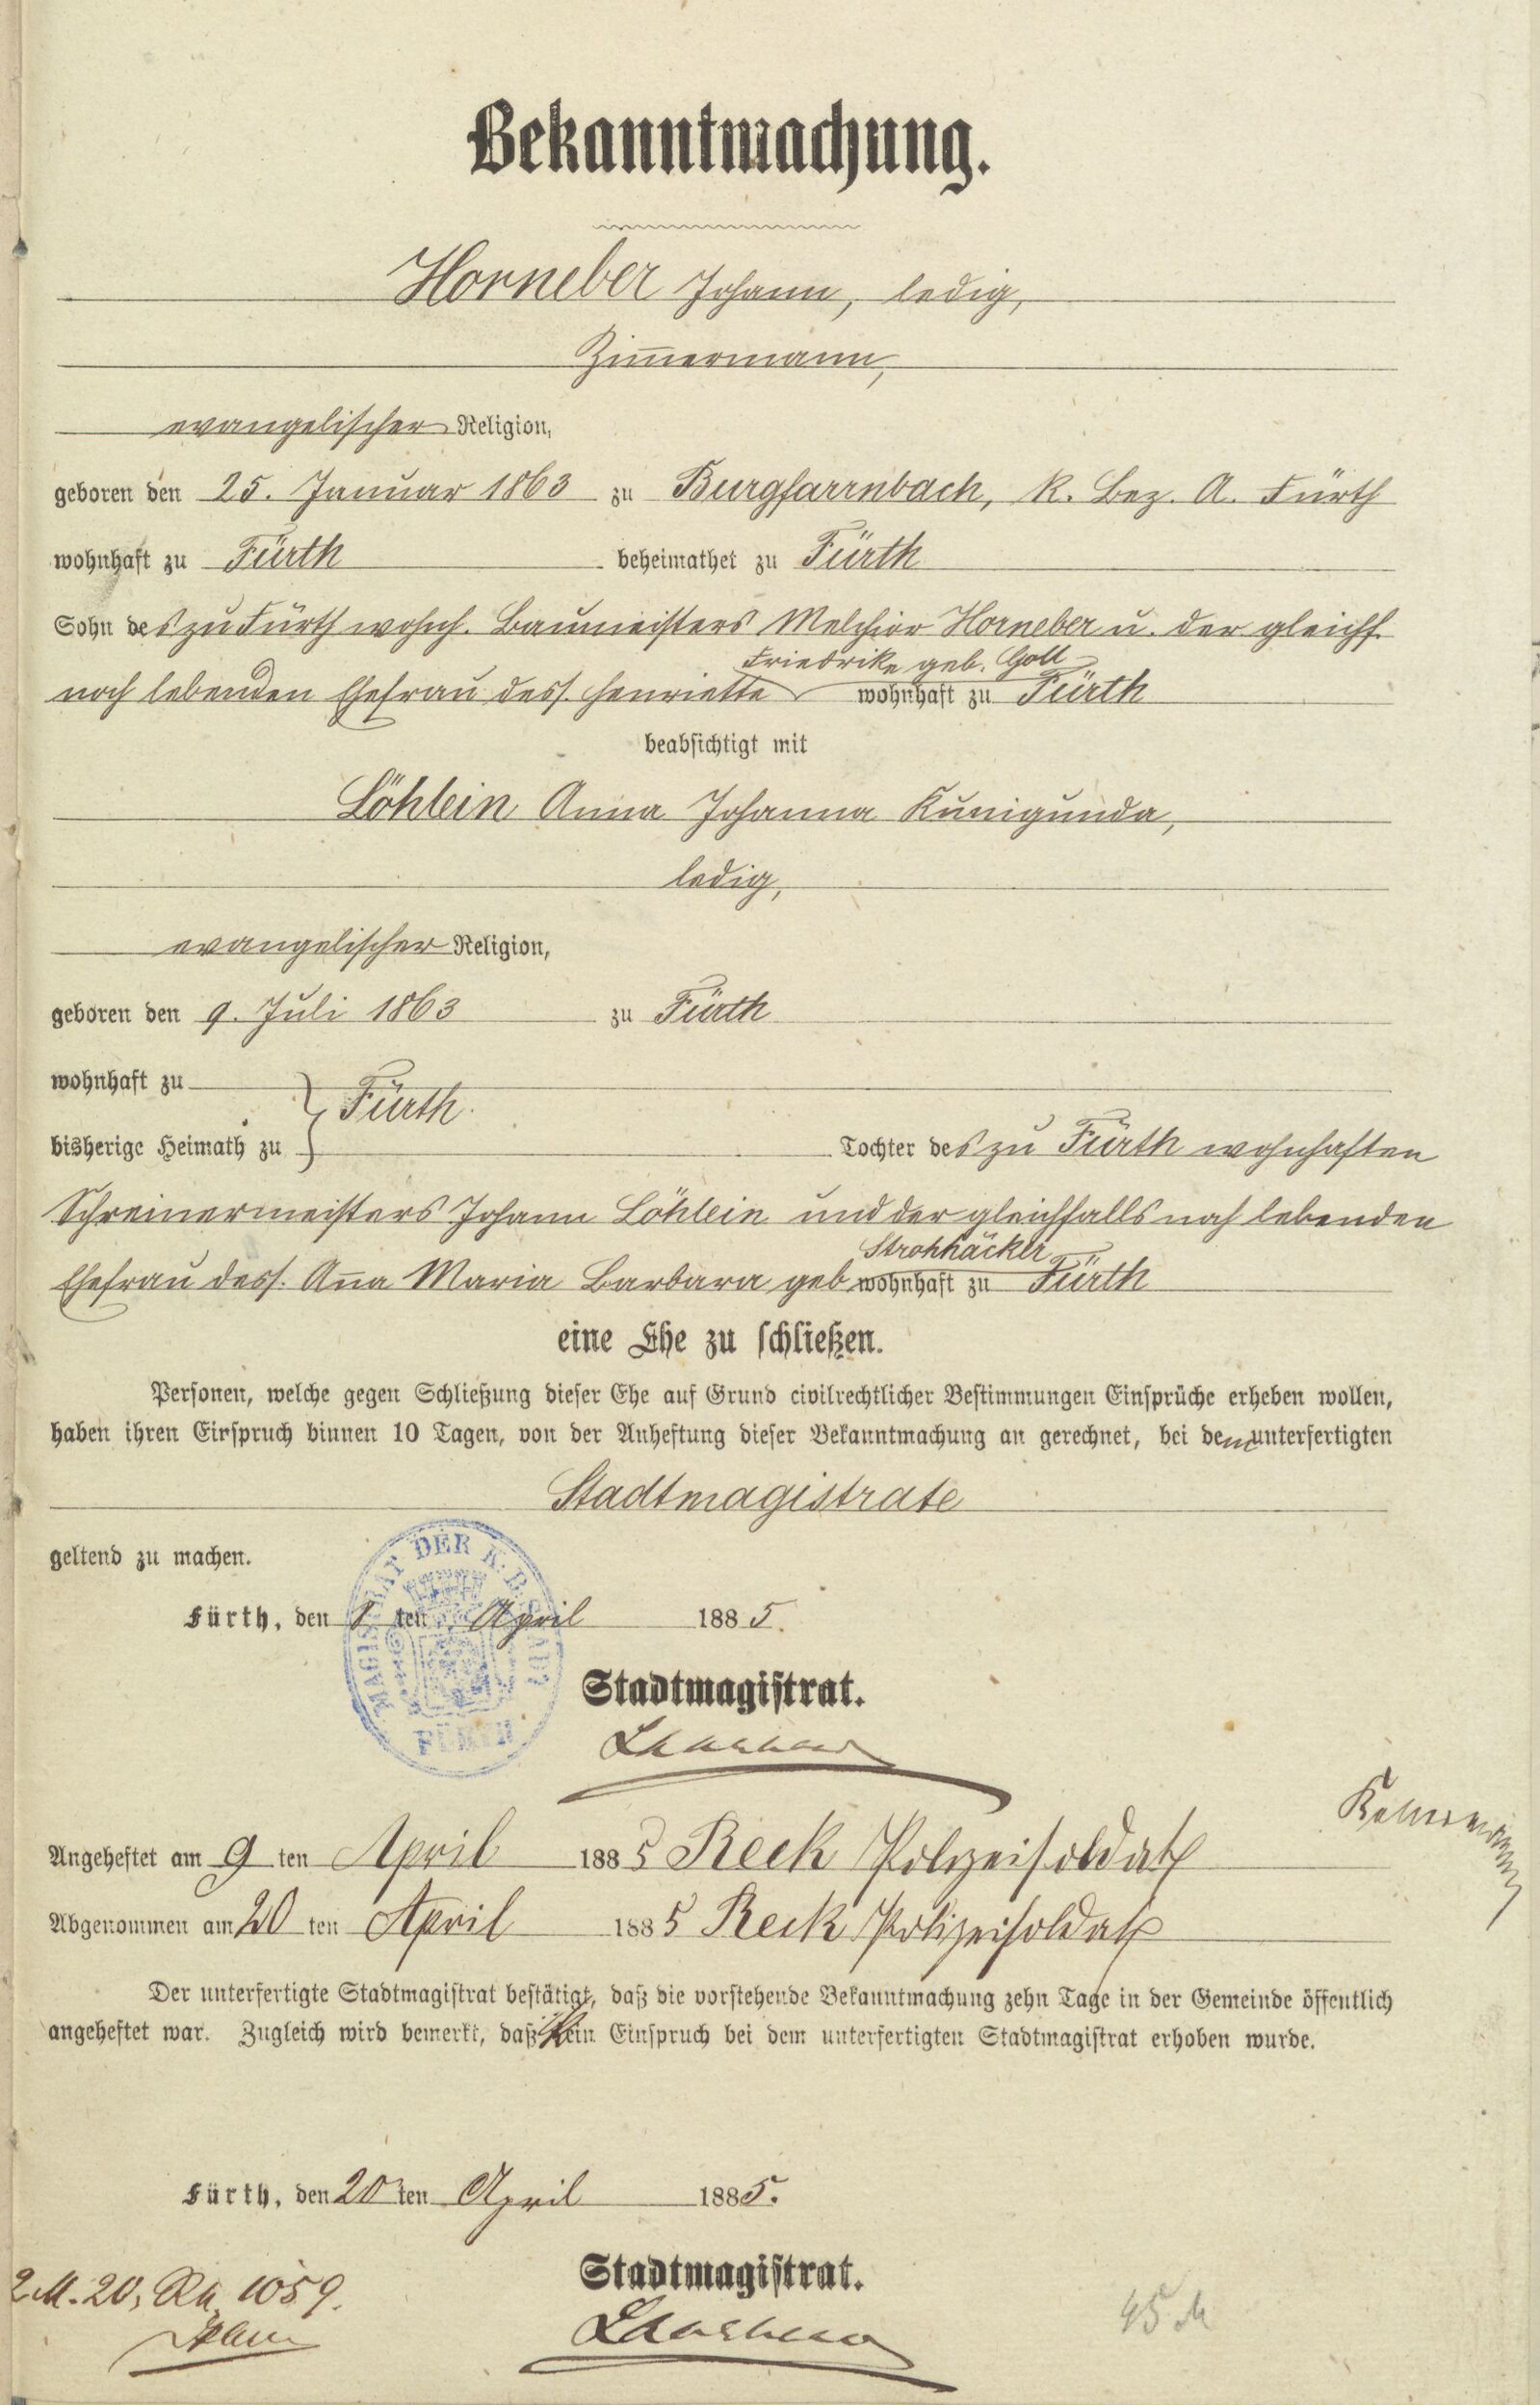 Bekanntmachung.
Horneber Johann, ledig,
Zim̄ermann,
evangelischer Religion,
geboren den 25. Januar 1863 zu Burgfarrnbach, k. Bez. A. Fürth
wohnhaft zu Fürth beheimathet zu Fürth
Sohn des zu Fürth wohnh. Baumeisters Melchior Horneber u. der gleichf.
Friedrike geb. Goll
noch lebenden Ehefrau dess. Henriette wohnhaft zu Fürth
beabsichtigt mit
Löhlein Anna Johanna Kunigunda,
ledig,
evangelischer Religion,
geboren den 9. Juli 1863 zu Fürth
wohnhaft zu
Fürth.
bisherige Heimath zu Tochter des zu Fürth wohnhaften
Schreinermeisters Johann Löhlein und der gleichfalls noch lebenden
Strohhäcker
Ehefrau dess. An̄a Maria Barbara geb. wohnhaft zu Fürth
eine Ehe zu schließen.
Personen, welche gegen Schließung dieser Ehe auf Grund civilrechtlicher Bestimmungen Einsprüche erheben wollen,
haben ihren Einspruch binnen 10 Tagen, von der Anheftung dieser Bekanntmachung an gerechnet, bei dem unterfertigten
Stadtmagistrate
geltend zu machen.
MAGISTRAT DER K. B. FÜRTH
Fürth, den 8 ten April 1885.
Stadtmagistrat.
Angeheftet am 9 ten April 1885 Reck Polizeisoldat
Abgenommen am 20 ten April 1885 Reck Polizeisoldat
Der unterfertigte Stadtmagistrat bestätigt, daß die vorstehende Bekanntmachung zehn Tage in der Gemeinde öffentlich
angeheftet war. Zugleich wird bemerkt, daß kein Einspruch bei dem unterfertigten Stadtmagistrat erhoben wurde.
Fürth, den 20 ten April 1885.
Stadtmagistrat.
2 M. 20, 1059.
45